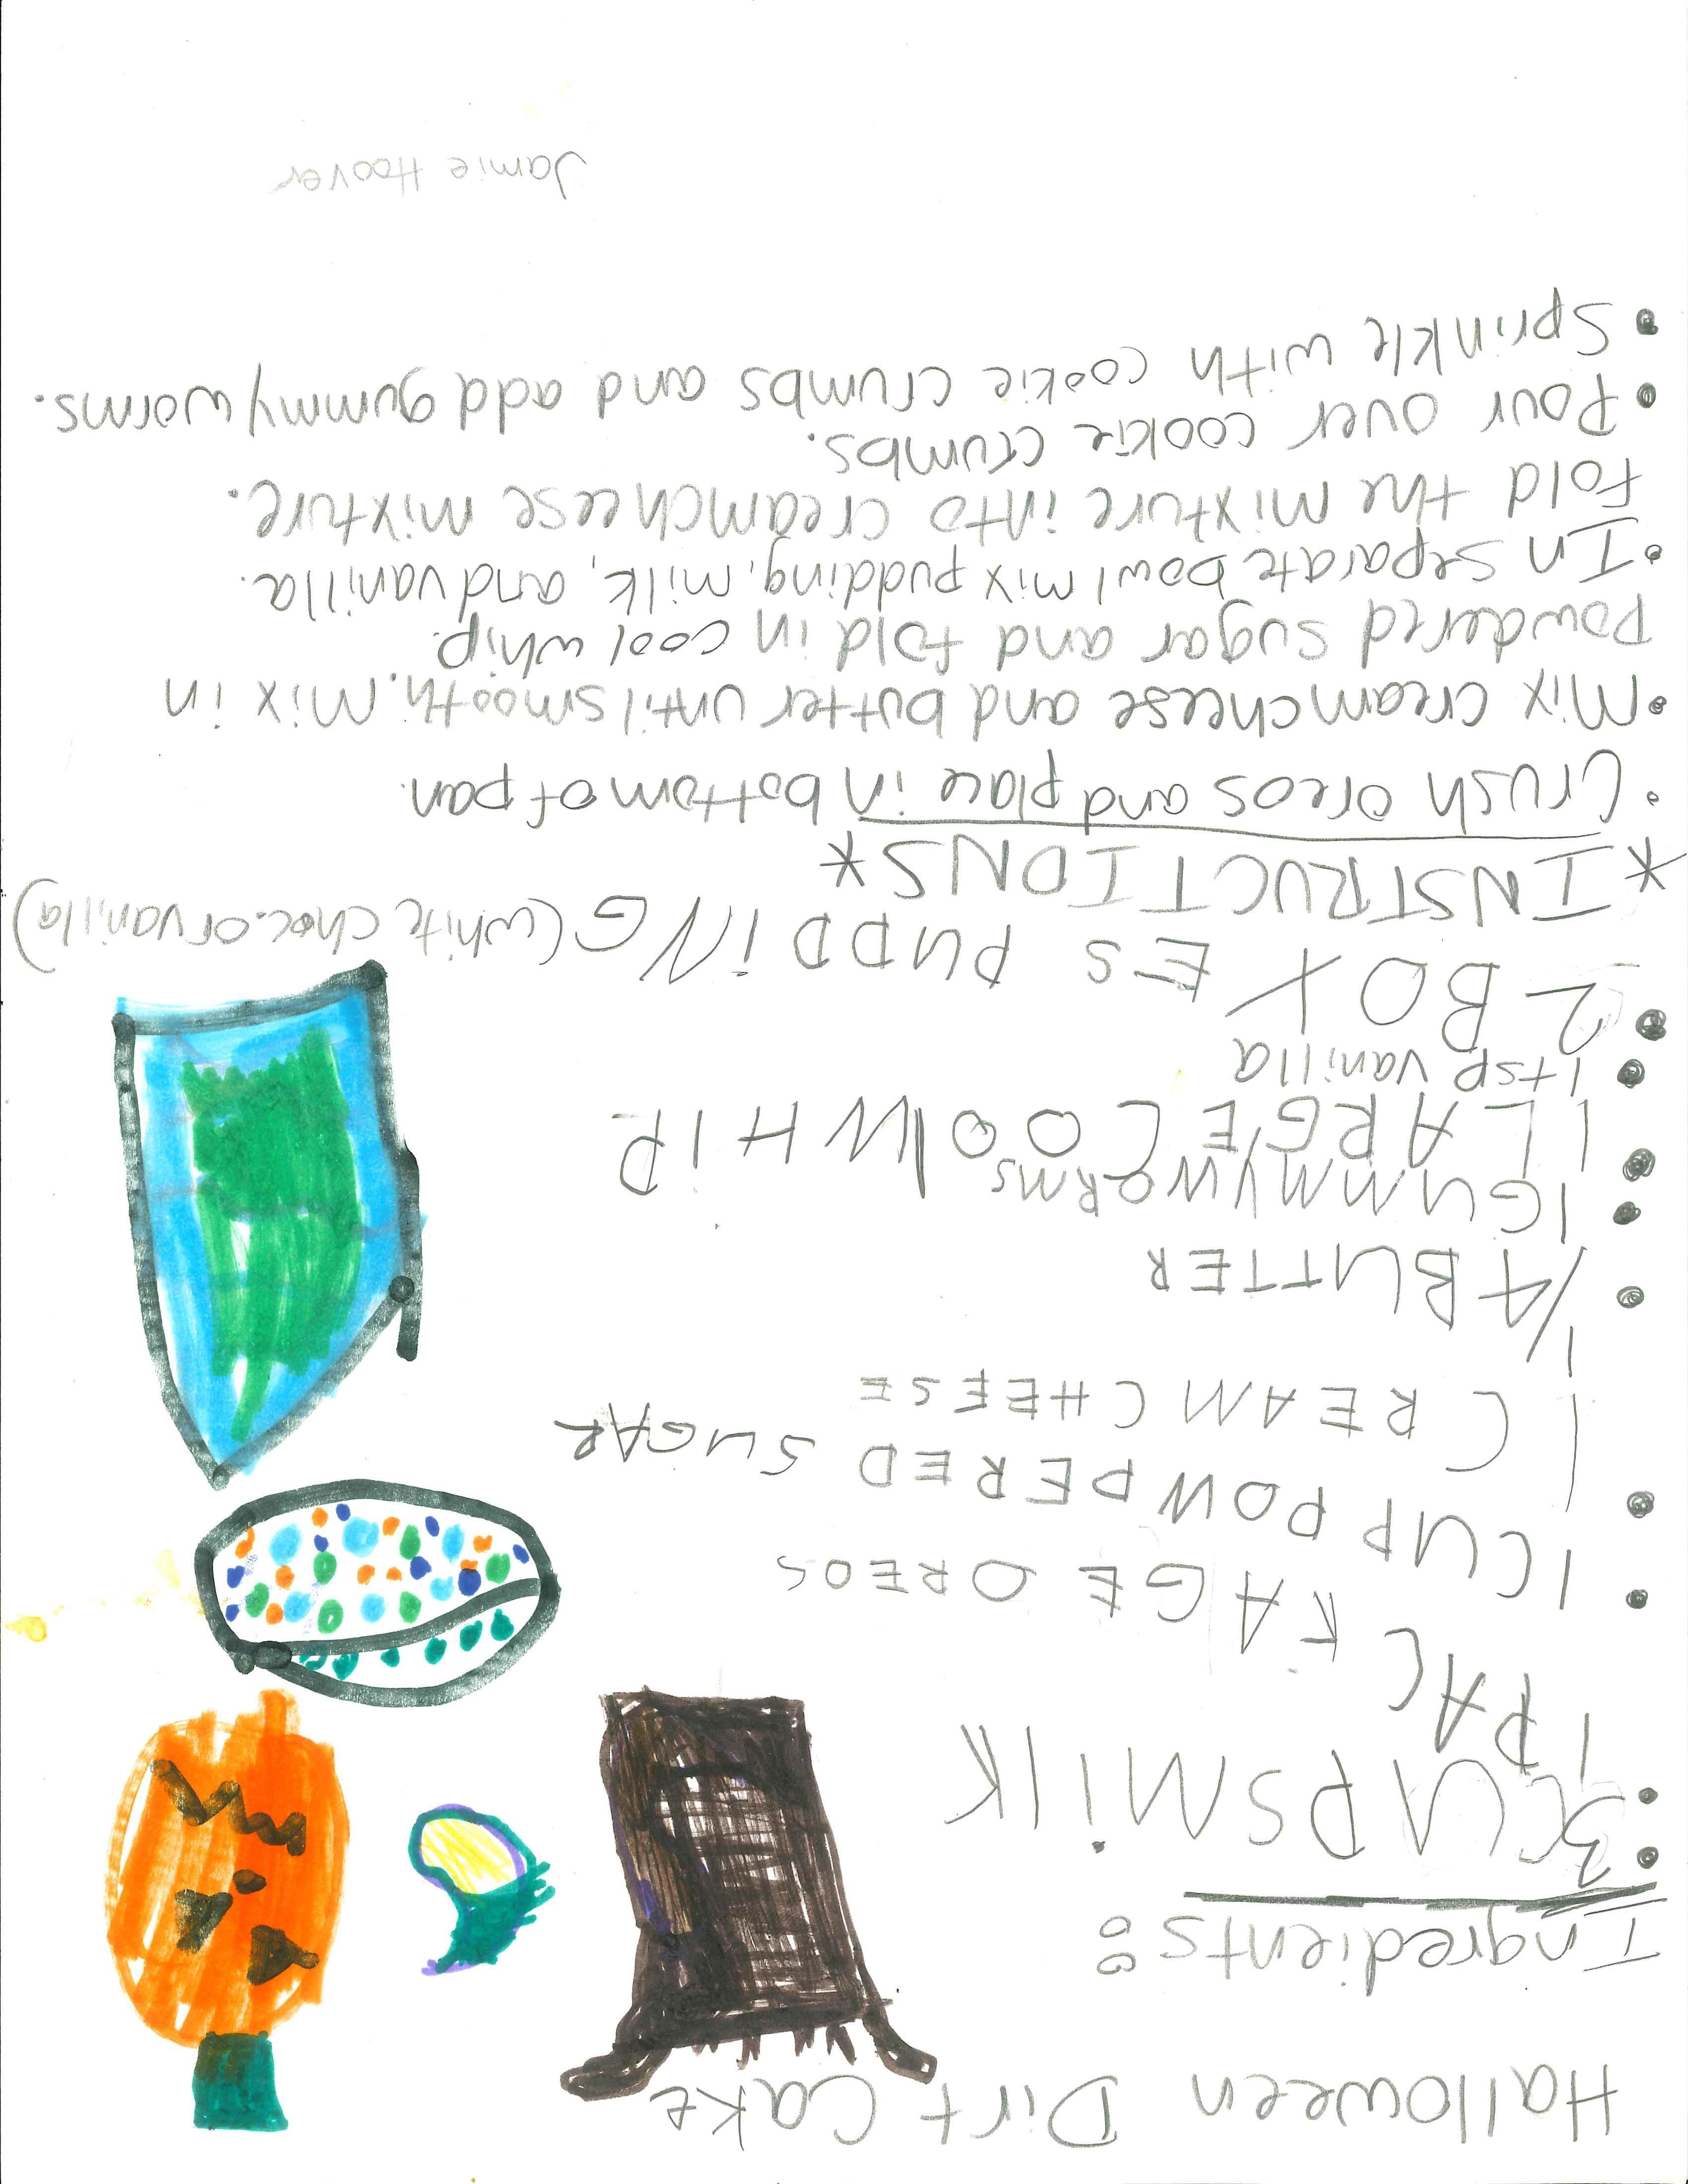 Halloween Dirt Cake
Ingredients:
• 3 CUPS MilK
• 1 PACKAGE OREOS
• 1 CUP POWDERED SUGAR
• 1 CREAM CHEESE
• 1/4 BUTTER
• 1 GUMMY WORMS
• 1 LARGE COOl WHIP
• 1 tsp vanilla
• 2 BOXES PUDDiNG (white choc. or vanilla)
*INSTRUCTIONS*
• Crush oreos and place in bottom of pan.
• Mix creamcheese and butter until smooth. Mix in
powdered sugar and fold in cool whip.
• In separate bowl mix pudding, milk, and vanilla.
Fold the mixture into creamcheese mixture.
• Pour over cookie crumbs.
• Sprinkle with cookie crumbs and add gummy worms.
Jamie Hoover